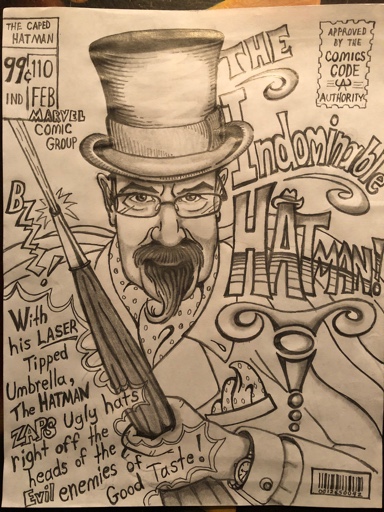 THE CAPED
HATMAN
99¢ 110
IND FEB
MARVEL
COMIC
GROUP
APPROVED
BY THE
COMICS
CODE
AUTHORITY
THE
Indominable
HATMAN!
BZZZZ!
With
his LASER
Tipped
Umbrella,
The HATMAN
ZAPS Ugly hats
right off the
heads of the
Evil enemies of
Good Taste!